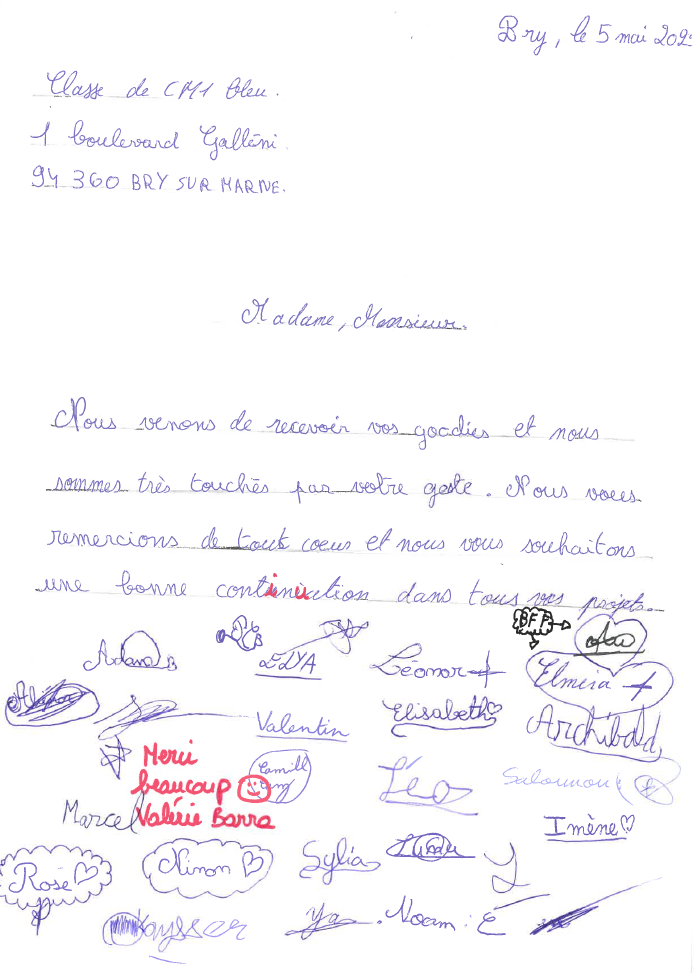 Bry, le 5 mai 202
Classe de CM1 bleu.
1 boulevard Galliéni.
94 360 BRY SUR MARNE.
Madame, Monsieur.
Nous venons de recevoir vos goodies et nous
sommes très touchés par votre geste. Nous vous
remercions de tout coeur et nous vous souhaitons
une bonne continuation dans tous vos projets.
BFF
Adam B
ELYA
Léonor
Elmira
Valentin
Elisabeth
Archibald
Merci
beaucoup
Valérie Barra
Camill
Léo
Marcel
Imène
Rose
Ninon
Sylia
Kaysser
Ya
Noam : E